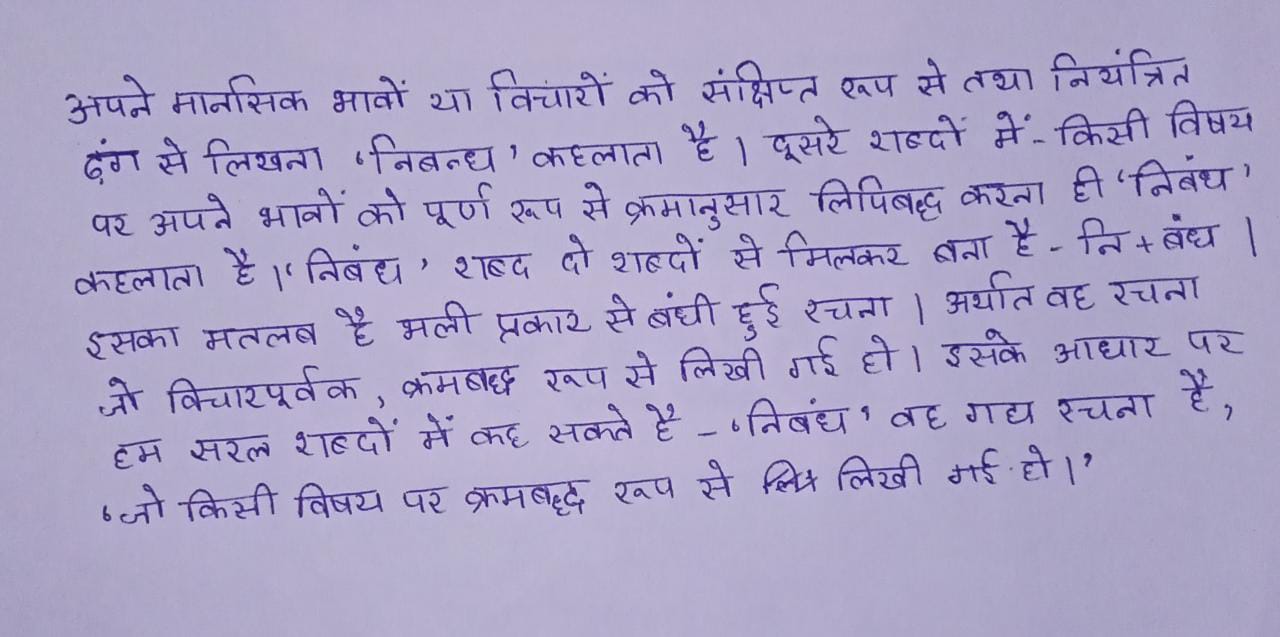 अपने मानसिक भावों या विचारों को संक्षिप्त रूप से तथा नियंत्रित
ढ़ंग से लिखना ‘निबन्ध’ कहलाता है । दूसरे शब्दों में - किसी विषय
पर अपने भावों को पूर्ण रूप से क्रमानुसार लिपिबद्ध करना ही ‘निबंध’
कहलाता है ।‘निबंध’ शब्द दो शब्दों से मिलकर बना है - नि + बंध ।
इसका मतलब है भली प्रकार से बंधी हुई रचना । अर्थात वह रचना
जो विचारपूर्वक , क्रमबद्ध रूप से लिखी गई हो । इसके आधार पर
हम सरल शब्दों में कह सकते है – ‘निबंध’ वह गद्य रचना है,
‘जो किसी विषय पर क्रमबद्ध रूप से लिखी गई हो ।’